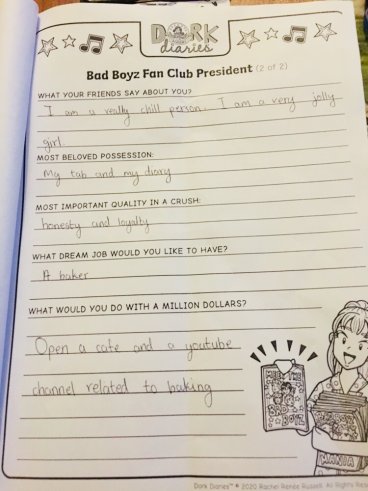 DORK
diaries
Bad Boyz Fan Club President (2 of 2)
WHAT YOUR FRIENDS SAY ABOUT YOU?
I am a really chill person. I am a very jolly
girl.
MOST BELOVED POSSESSION:
My tab and my diary
MOST IMPORTANT QUALITY IN A CRUSH:
honesty and loyalty
WHAT DREAM JOB WOULD YOU LIKE TO HAVE?
A baker
WHAT WOULD YOU DO WITH A MILLION DOLLARS?
Open a cafe and a youtube
channel related to baking
MEET THE
BAD
BOYZ
MANIA
Dork Diaries™ © 2020 Rachel Renée Russell. All Rights